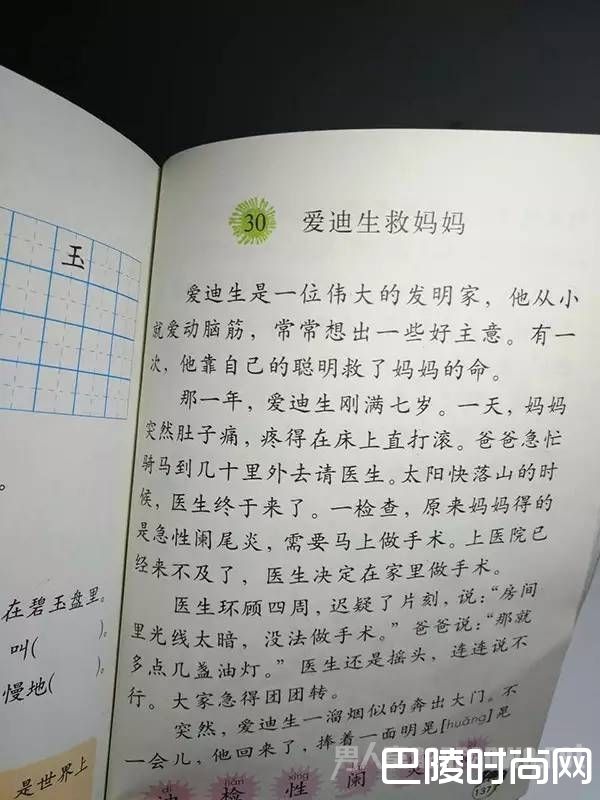 玉
。
在碧玉盘里。
叫(      )。
慢地(      )。
是世界上
30 爱迪生救妈妈
爱迪生是一位伟大的发明家，他从小
就爱动脑筋，常常想出一些好主意。有一
次，他靠自己的聪明救了妈妈的命。
那一年，爱迪生刚满七岁。一天，妈妈
突然肚子痛，疼得在床上直打滚。爸爸急忙
骑马到几十里外去请医生。太阳快落山的时
候，医生终于来了。一检查，原来妈妈得的
是急性阑尾炎，需要马上做手术。上医院已
经来不及了，医生决定在家里做手术。
医生环顾四周，迟疑了片刻，说：“房间
里光线太暗，没法做手术。”爸爸说：“那就
多点几盏油灯。”医生还是摇头，连连说不
行。大家急得团团转。
突然，爱迪生一溜烟似的奔出大门。不
一会儿，他回来了，捧着一面明晃[huǎng]晃
dí jiǎn xìng
迪 检 性 阑
137
巴陵时尚网